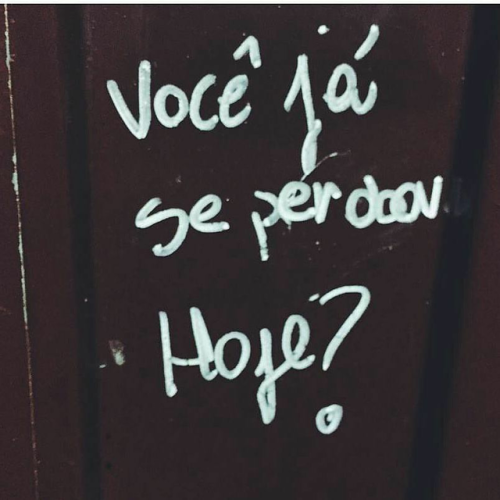 Você já
se perdoou
Hoje?